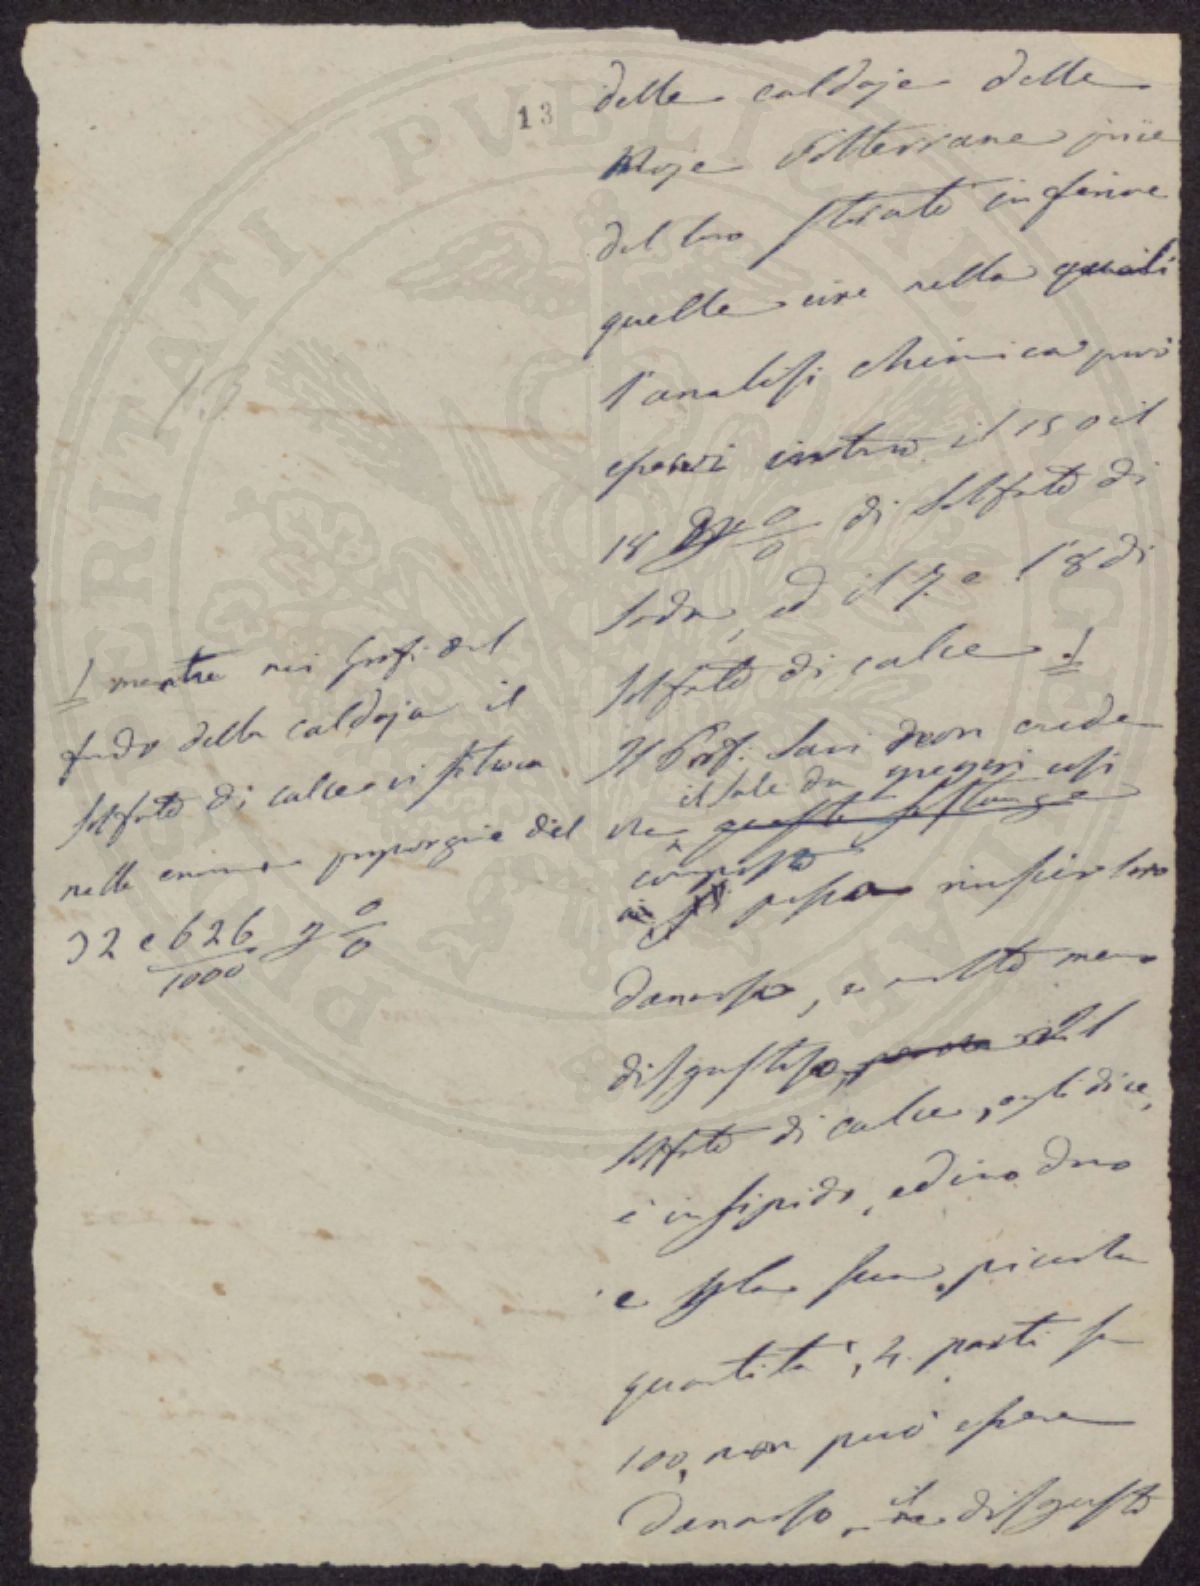 13
delle caldaje delle
Moje Volterrane
del loro strato inferiore
quelle cioè nella quali
l'analisi chimica può
esservi il 15 o il
18 p 0/0 di Solfato di
Soda, ed il 7. e l'8 di
Solfato di calce
Il Prof. Savi non crede
il Sale da così
che queste sostanze
composto
possa riuscir loro
dannoso, e molto meno
disgustoso, il
Solfato di calce, egli dice,
è insipido, ed inodoro
e p la sua piccola
quantità, 4. parti su
100, non può essere
dannoso, il disgusto
mentre nei del
fondo della caldaja il
Solfato di calce vi si trova
nella enorme proporzione del
32 e 626/1000 p 0/0
PVBLICAE